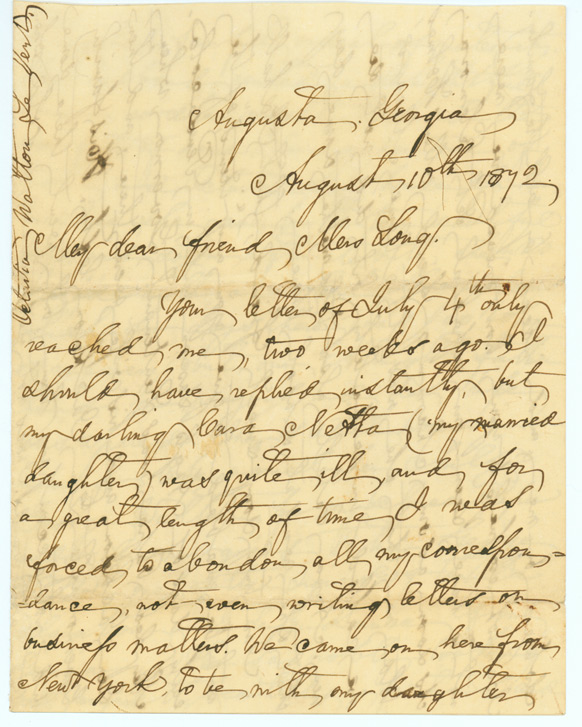 Octavia Walton Le Vert
Augusta, Georgia
August 10th 1872.
My dear friend Mrs Long.
Your letter of July 4th only
reached me, two weeks ago. I
should have replied instantly, but
my darling Cara Netta (my married
daughter) was quite ill, and for
a great length of time, I was
forced to abandon all my correspon=
=dance, not even writing letters on
business matters. We came on here from
New York, to be with my daughter